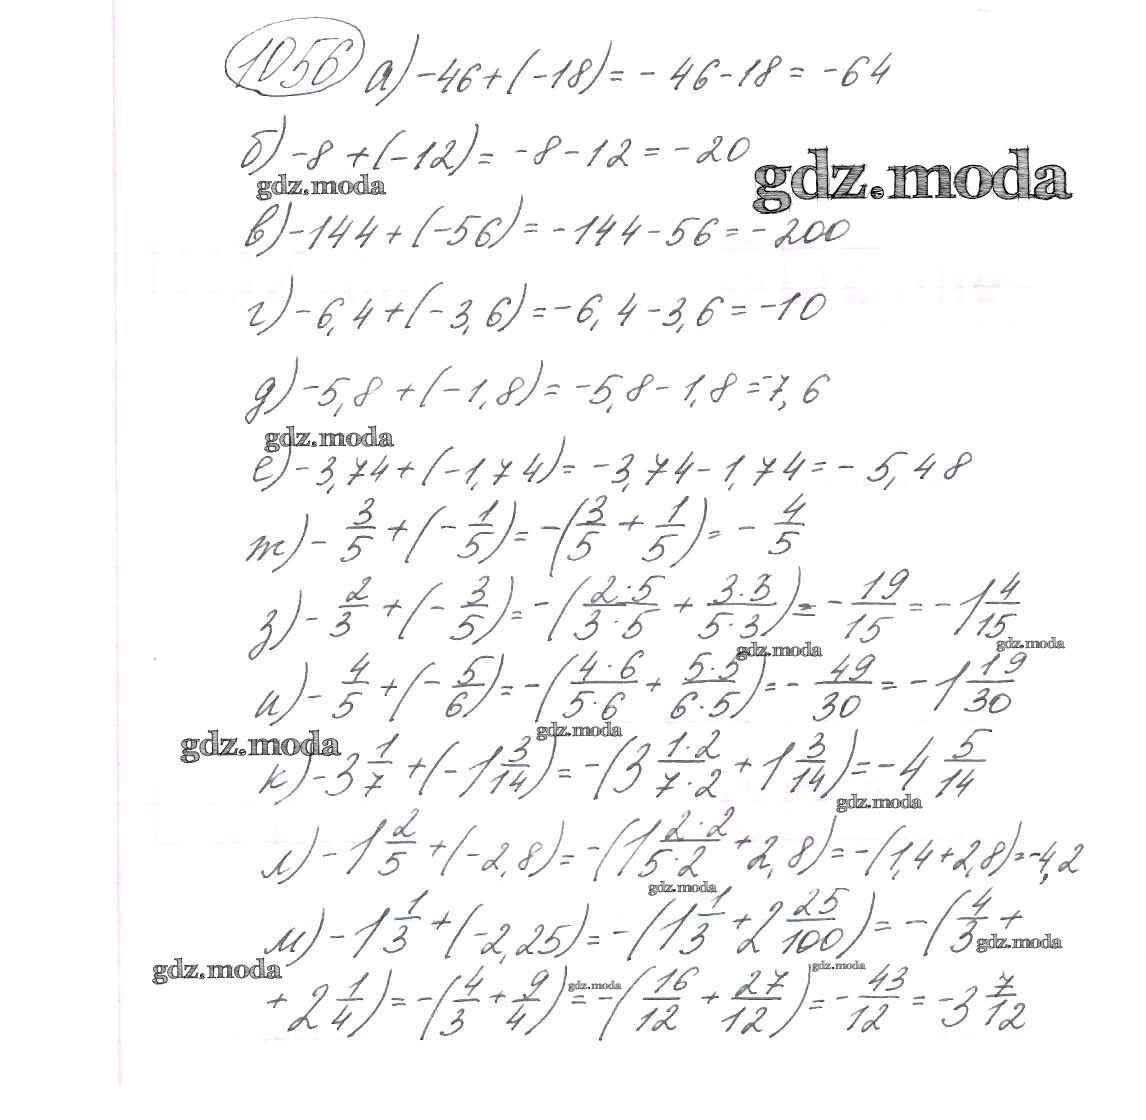 1056 а) -46+(-18)= -46-18= -64
б) -8+(-12)= -8-12= -20
gdz.moda
gdz.moda
в) -144+(-56)= -144-56= -200
г) -6,4+(-3,6)= -6,4-3,6= -10
д) -5,8+(-1,8)= -5,8-1,8= -7,6
gdz.moda
е) -3,74+(-1,74)= -3,74-1,74= -5,48
ж) - 3/5 + (- 1/5) = -(3/5 + 1/5) = - 4/5
з) - 2/3 + (- 3/5) = -(2·5/3·5 + 3·3/5·3) = - 19/15 = -1 4/15
gdz.moda gdz.moda
и) - 4/5 + (- 5/6) = -(4·6/5·6 + 5·5/6·5) = - 49/30 = -1 19/30
gdz.moda gdz.moda
к) -3 1/7 + (-1 3/14) = -(3 1·2/7·2 + 1 3/14) = -4 5/14
gdz.moda
л) -1 2/5 + (-2,8) = -(1 2·2/5·2 + 2,8) = -(1,4+2,8)= -4,2
gdz.moda
м) -1 1/3 + (-2,25) = -(1 1/3 + 2 25/100) = -(4/3 +
gdz.moda gdz.moda gdz.moda
+ 2 1/4) = -(4/3 + 9/4) = -(16/12 + 27/12) = - 43/12 = -3 7/12
gdz.moda